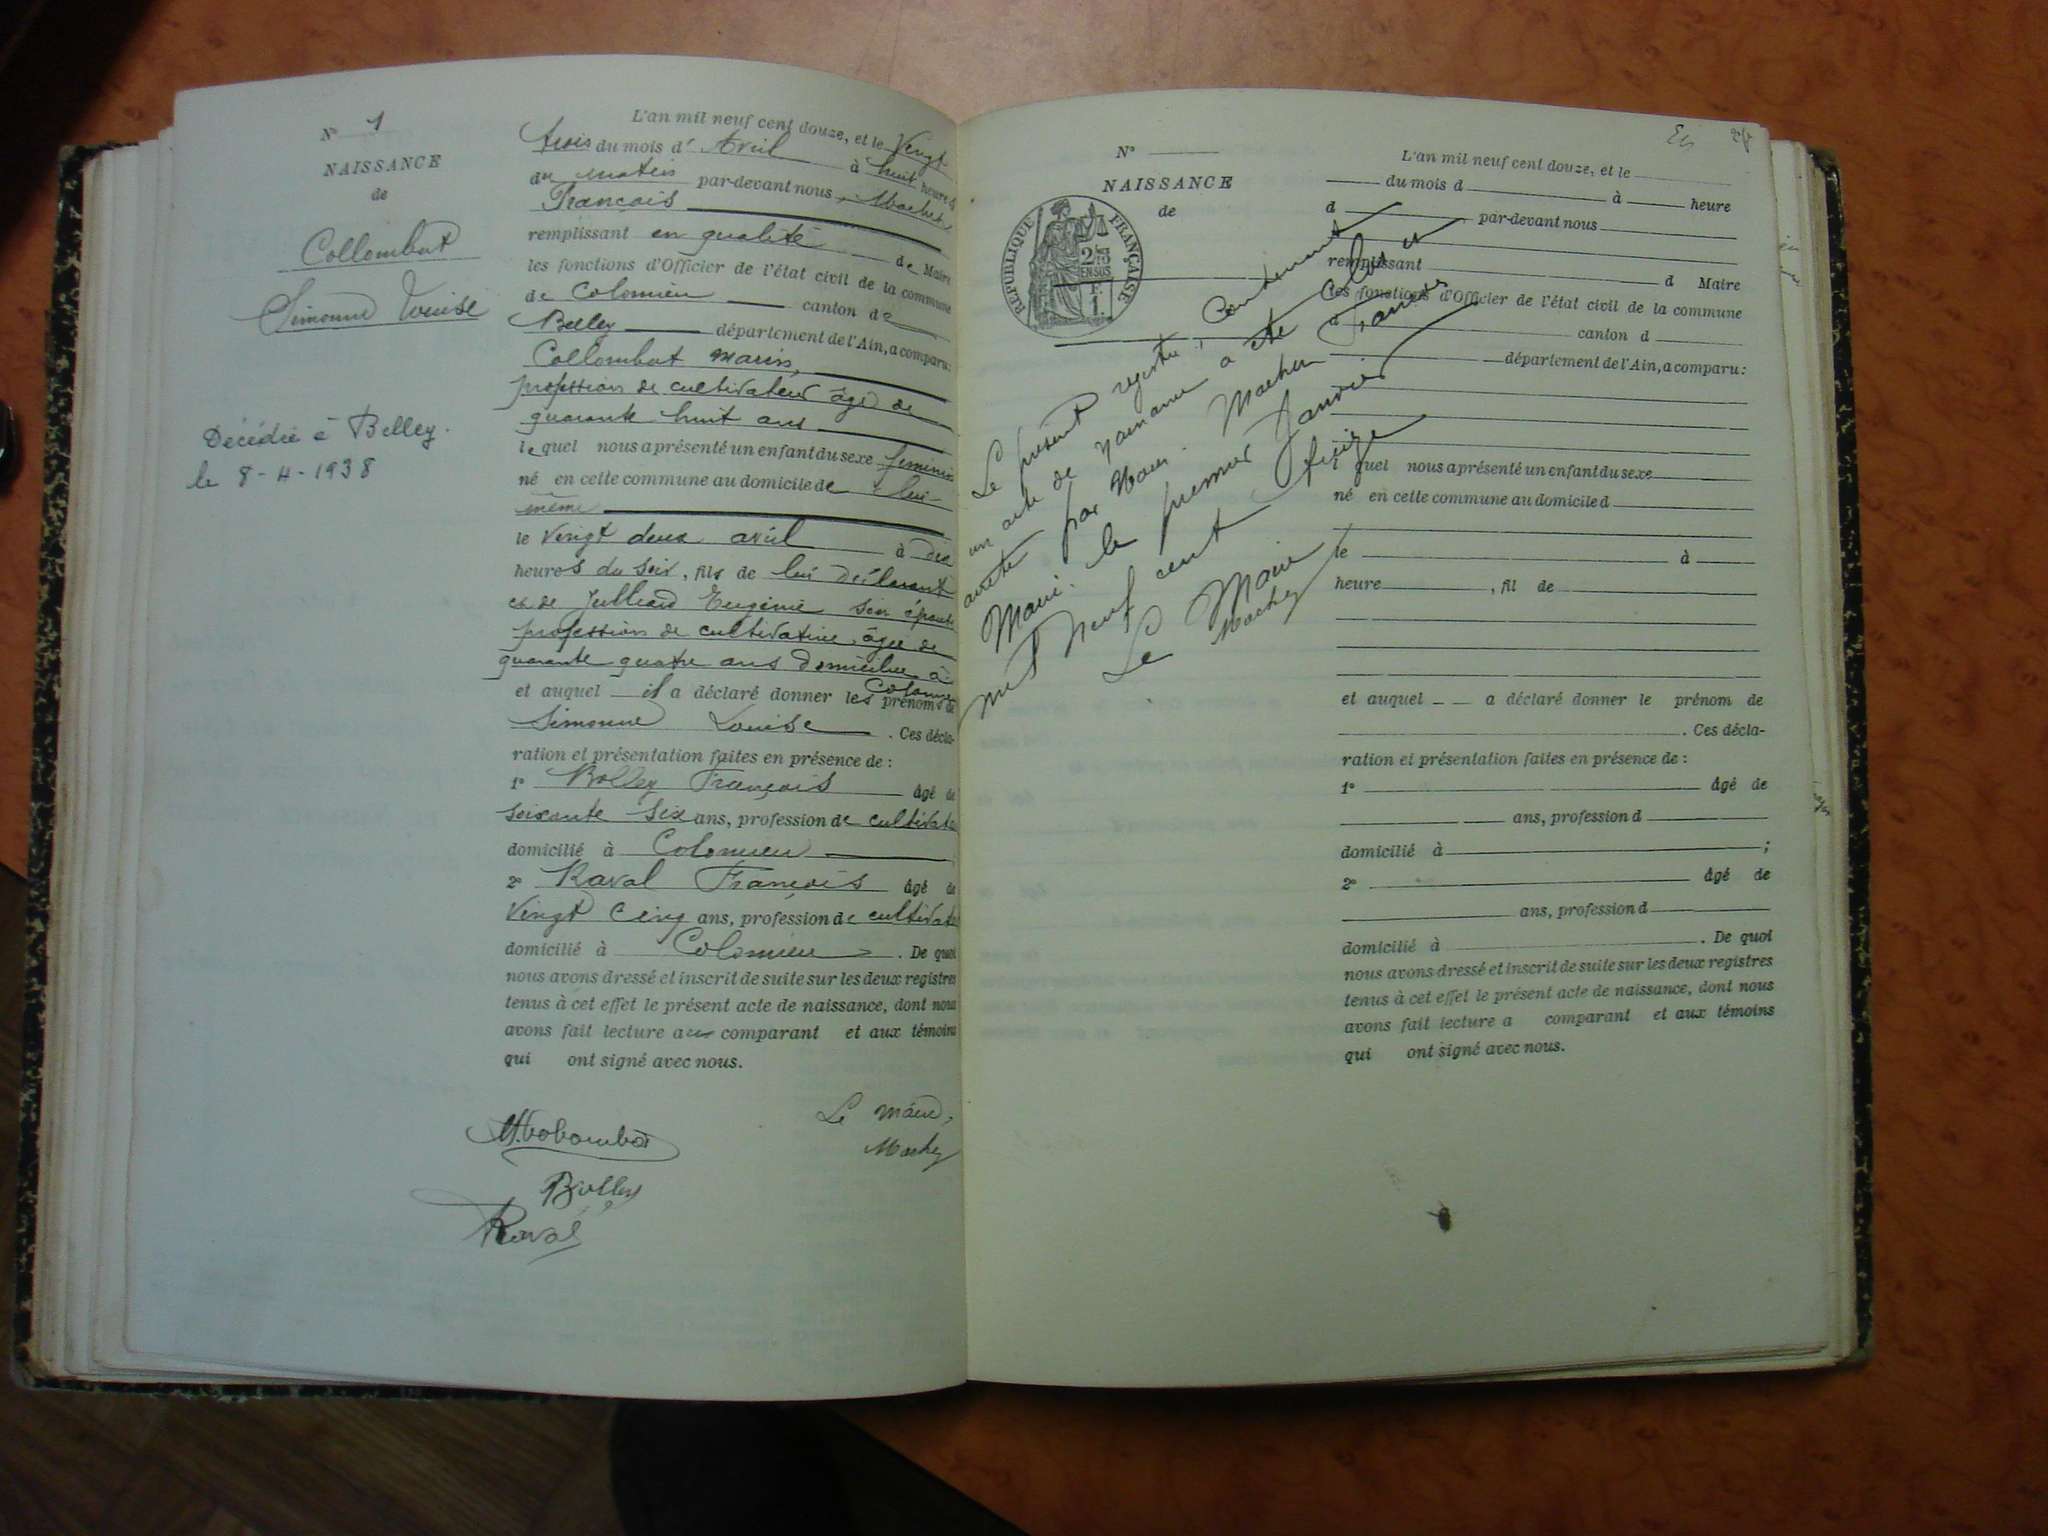 N° 1
NAISSANCE
de
Collombat
Simonne Louise
Décédée à Belley.
le 8-4-1938
L'an mil neuf cent douze, et le Vingt
trois du mois d' Avril à huit heures
du matin par-devant nous, Machet
François
remplissant en qualité de Maire
les fonctions d'Officier de l'état civil de la commune
de Colomieu canton de
Belley département de l'Ain, a comparu:
Collombat marin,
profession de cultivateur âgé de
quarante huit ans
lequel nous a présenté un enfant du sexe féminin
né en cette commune au domicile de lui-
même
le Vingt deux avril à dix
heures du soir, fils de lui déclarant
et de Julliand Eugénie son épouse
profession de cultivatrice, âgée de
quarante quatre ans domiciliée à
Colomieu
et auquel il a déclaré donner les prénoms de
Simonne Louise . Ces décla-
ration et présentation faites en présence de :
1° Bolley François âgé de
soixante six ans, profession de cultivate
domicilié à Colomieu ;
2° Raval François âgé de
Vingt Cinq ans, profession de cultivate
domicilié à Colomieu . De quoi
nous avons dressé et inscrit de suite sur les deux registres
tenus à cet effet le présent acte de naissance, dont nous
avons fait lecture au comparant et aux témoins
qui ont signé avec nous.
Le maire,
Machet
M. Collombat
Bolley
Raval
N°
NAISSANCE
de
RÉPUBLIQUE FRANÇAISE
2/10
EN SUS
F.
1.
L'an mil neuf cent douze, et le
du mois d à heure
d par-devant nous
remplissant d Maire
les fonctions d'Officier de l'état civil de la commune
d canton d
département de l'Ain, a comparu:
l quel nous a présenté un enfant du sexe
né en cette commune au domicile d
le à
heure , fil de
et auquel a déclaré donner le prénom de
. Ces décla-
ration et présentation faites en présence de :
1° âgé de
ans, profession d
domicilié à ;
2° âgé de
ans, profession d
domicilié à . De quoi
nous avons dressé et inscrit de suite sur les deux registres
tenus à cet effet le présent acte de naissance, dont nous
avons fait lecture a comparant et aux témoins
qui ont signé avec nous.
Le présent registre, contenant
un acte de naissance a été clos et
arrêté par Nous Machet François
Maire le premier Janvier
mil neuf cent treize
Le Maire
Machet